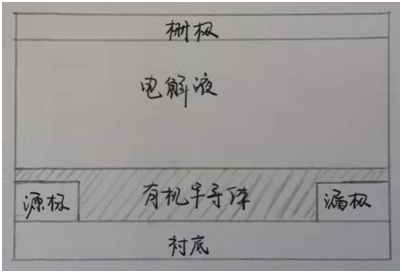 栅极
电解液
源极 有机半导体 漏极
衬底